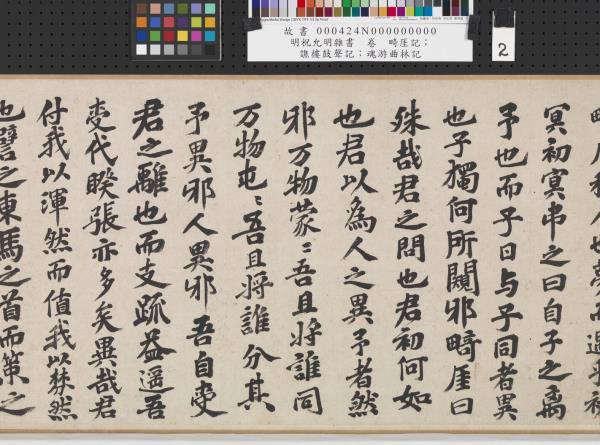 故書 000424N000000000
明祝允明雜書 卷 畸厓記；
譙樓鼓聲記；魂游曲林記
2
冥初冥弔之曰自子之离
予也而子日与子同者異
也子獨何所闕邪畸厓曰
殊哉君之問也君初何如
也君以為人之異予者然
邪万物蒙〻吾且將誰同
万物屯〻吾且將誰分其
予異邪人異邪吾自受
君之離也而支疏益遥吾
受代睽張亦多矣異哉君
付我以渾然而值我以棼然
也譬之東馬之首而策之